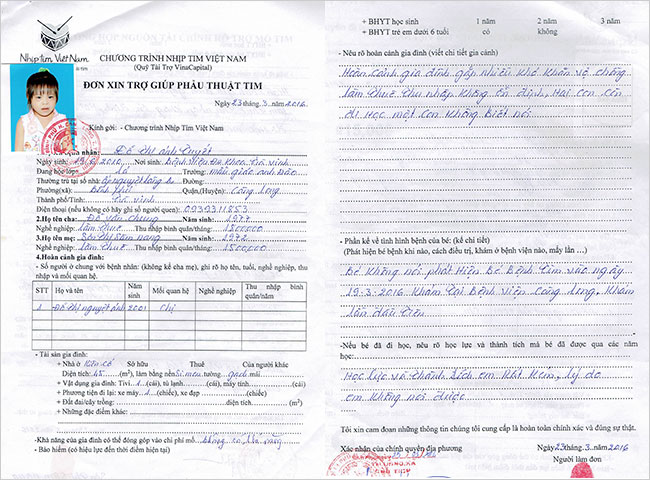 Nhịp Tim Việt Nam
CHƯƠNG TRÌNH NHỊP TIM VIỆT NAM
(Quỹ Tài Trợ VinaCapital)
ĐƠN XIN TRỢ GIÚP PHẪU THUẬT TIM
Ngày 23 tháng. 3 năm. 2016
Kính gởi: - Chương trình Nhịp Tim Việt Nam
nhân: Đỗ Thị Ánh Tuyết
Ngày sinh: 2010 Nơi sinh: Bệnh viện Đa Khoa Trà Vinh
Đang học lớp: Lá Trường: mẫu giáo anh Đào
Thường trú tại số nhà: Ấp nguyệt lãng A Đường:
Phường(xã): Bình Phú Quận,(Huyện): Càng Long
Thành phố/Tỉnh: Trà Vinh
Điện thoại (nếu không có hãy ghi số người quen): 0939311853
2.Họ tên cha: Đỗ Văn Chung Năm sinh: 1977
Nghề nghiệp: Làm Thuê Thu nhập bình quân/tháng: 1500000
3.Họ tên mẹ: Sơn Thị Năm sinh: 1972
Nghề nghiệp: Làm Thuê Thu nhập bình quân/tháng: 1500000
4.Hoàn cảnh gia đình:
- Số người ở chung với bệnh nhân: (không kể cha mẹ), ghi rõ họ tên, tuổi, nghề nghiệp, thu nhập và mối quan hệ.
STT Họ và tên Năm sinh Mối quan hệ Nghề nghiệp Thu nhập bình quân/năm
1 Đỗ Thị nguyệt Ánh 2001 Chị
- Tài sản gia đình:
+ Nhà ở Sở hữu Thuê Của người khác
Diện tích: 45 (m²), làm bằng nền: Si meu tường mái:
+ Vật dụng gia đình: Tivi. 1 (cái), tủ lạnh (cái), máy tính (cái)
+ Phương tiện đi lại: xe máy. 1 (chiếc), xe đạp (chiếc)
+ Đất đai/cây trồng: diện tích (m²)
+ Những đặc điểm khác:
-Khả năng của gia đình có thể đóng góp vào chi phí mổ: không có khả năng
- Bảo hiểm (có hiệu lực đến thời điểm hiện tại)
+ BHYT học sinh 1 năm 2 năm 3 năm
+ BHYT trẻ em dưới 6 tuổi có không
- Nêu rõ hoàn cảnh gia đình (viết chi tiết gia cảnh)
Hoàn cảnh gia đình gặp nhiều khó khăn vợ chồng
làm Thuê Thu nhập không ổn định, Hai con còn
đi học một con không biết nói
- Phần kể về tình hình bệnh của bé: (kể chi tiết)
(Phát hiện bé bệnh khi nào, cách điều trị, khám ở bệnh viện nào, mấy lần …)
Bé không nói phát hiện Bé Bệnh Tim vào ngày
19-3-2016 Khám Tại Bệnh viện Càng Long, Khám
lần đầu Tiên
-Nếu bé đã đi học, nêu rõ học lực và thành tích mà bé đã được qua các năm học:
Học lực và thành tích em Rất kém, lý do
em không nói được
Tôi xin cam đoan những thông tin chúng tôi cung cấp là hoàn toàn chính xác và đúng sự thật.
Xác nhận của chính quyền địa phương Ngày 23 tháng. 3 năm 2016
Người làm đơn